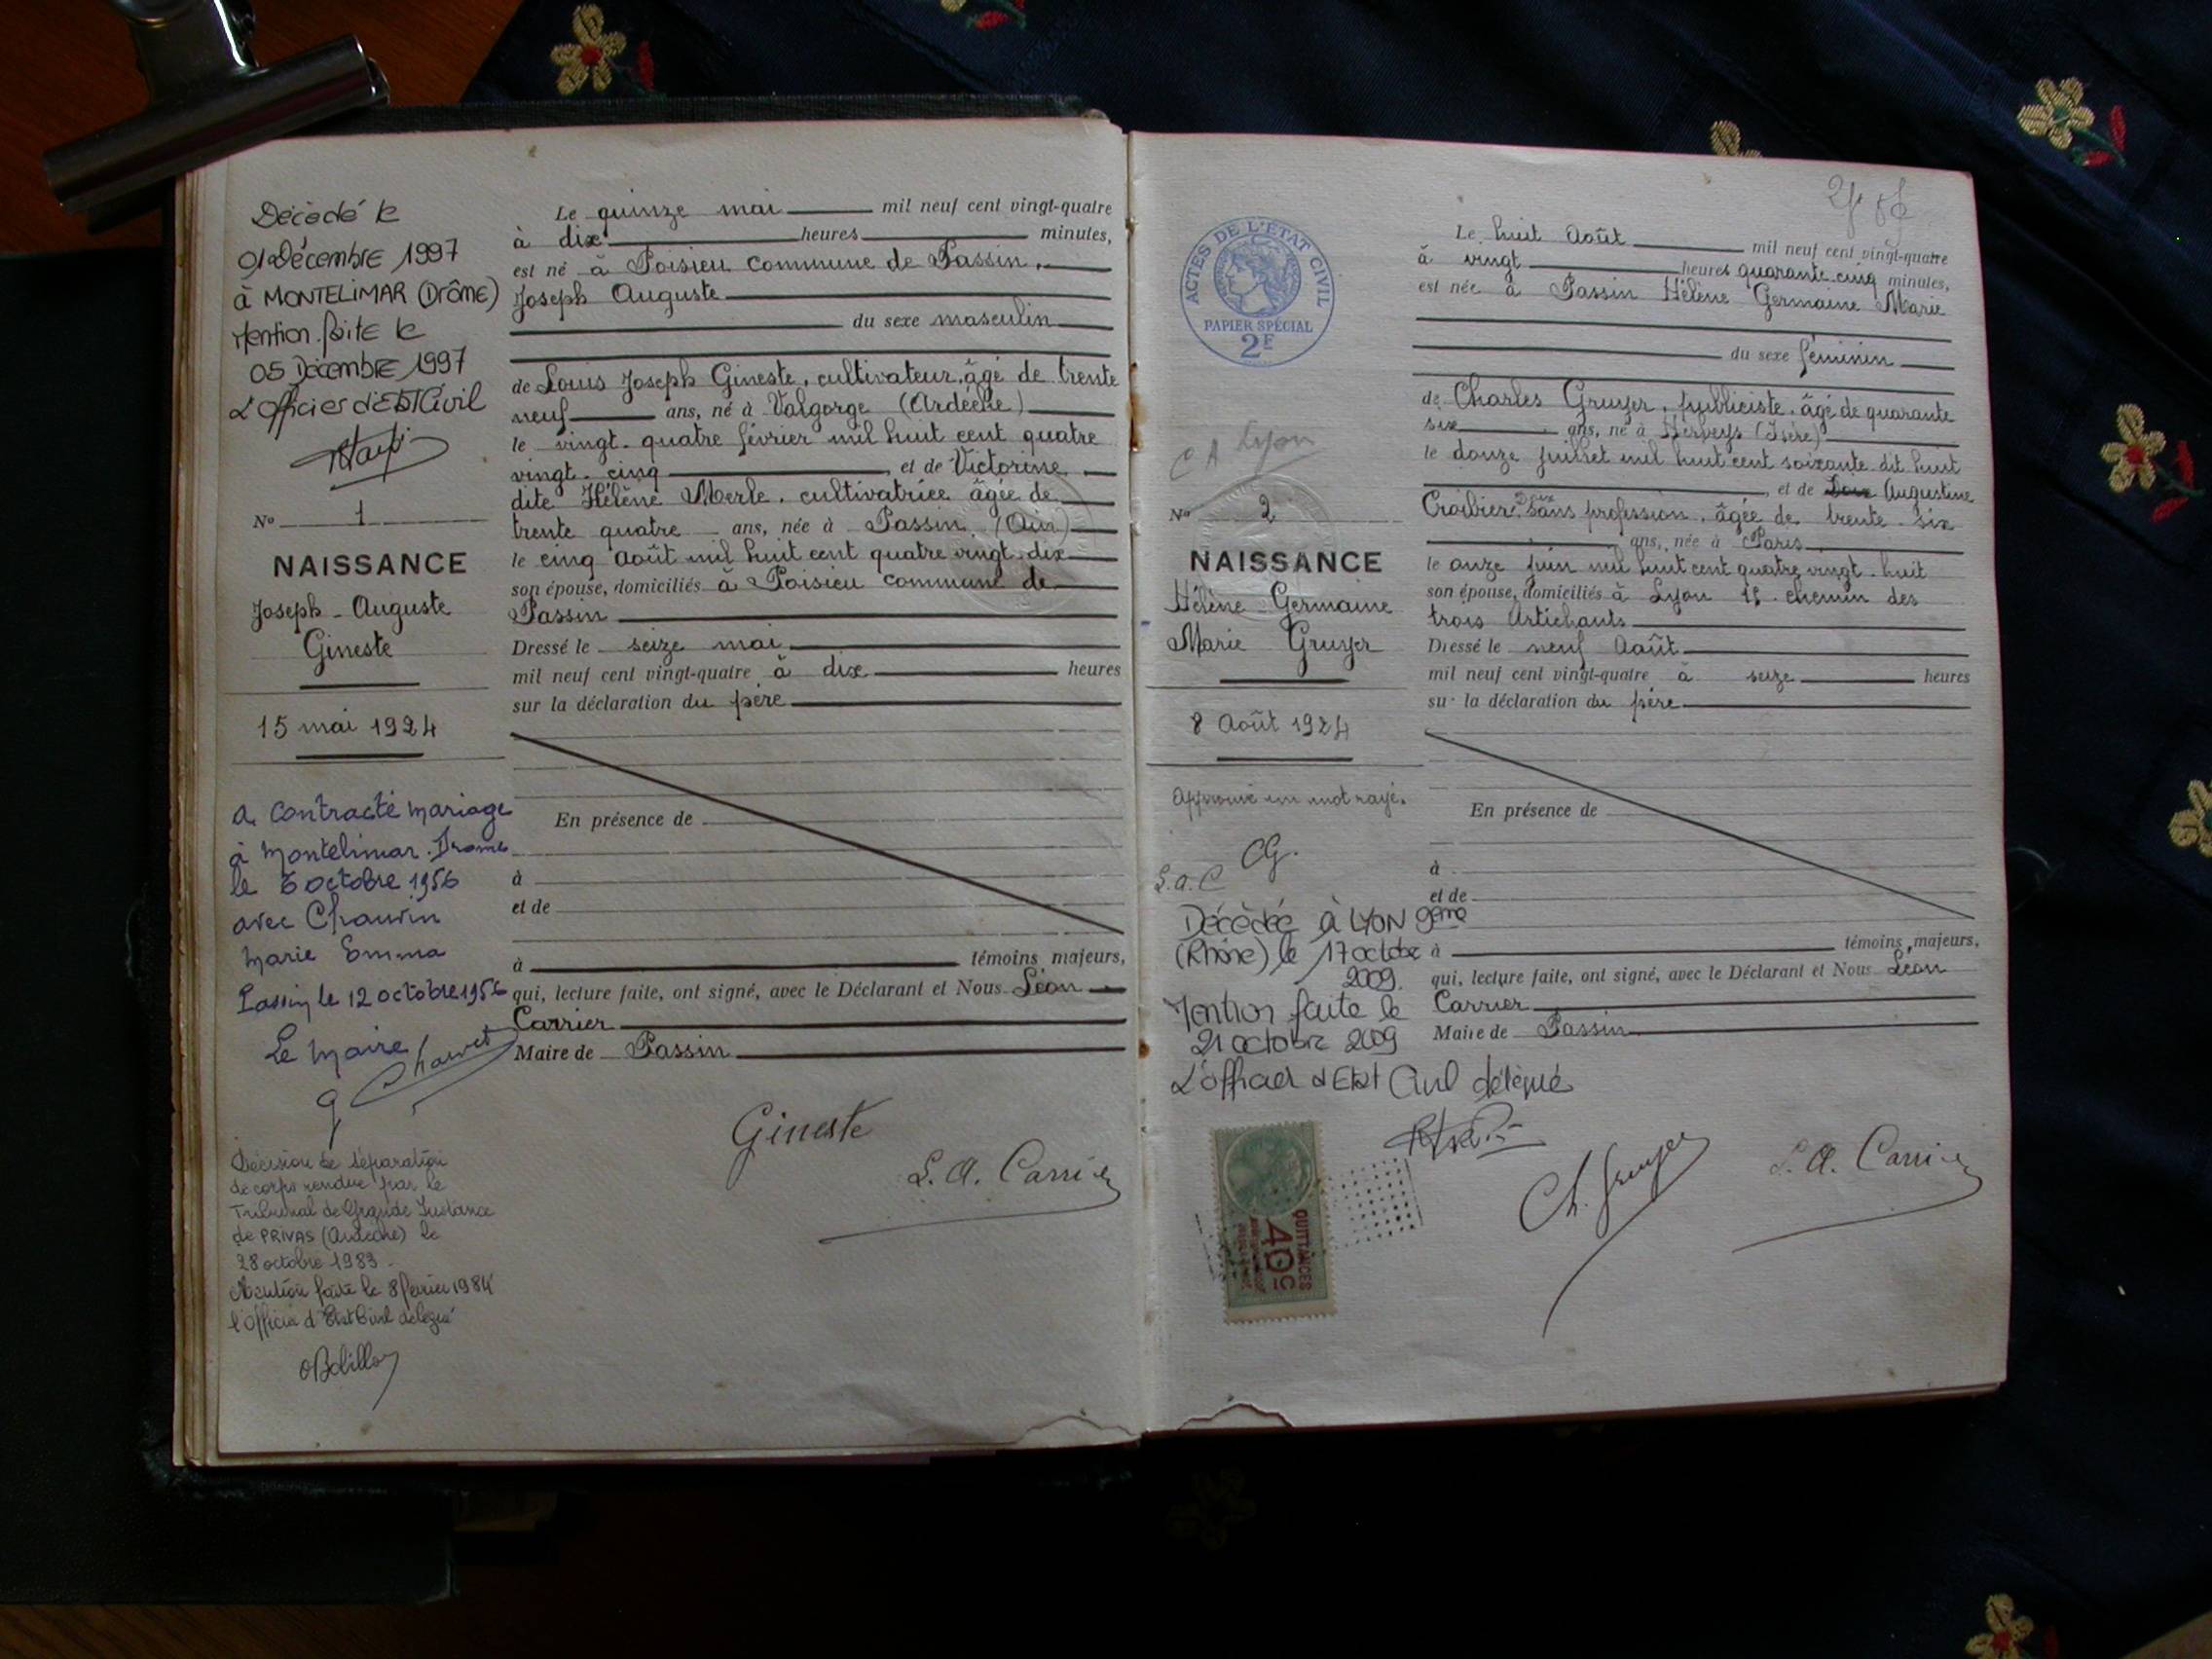 Décédé le
01 Décembre 1997
à MONTELIMAR (Drôme)
Mention faite le
05 Décembre 1997
L'Officier d'Etat Civil
No 1
NAISSANCE
Joseph - Auguste
Gineste
15 mai 1924
a contracté mariage
à Montelimar. Drome
le 6 octobre 1956
avec Chauvin
Marie Emma
Passin le 12 octobre 1956
Le Maire
Décision de séparation
de corps rendue par le
Tribunal de Grande Instance
de PRIVAS (Ardèche) le
28 octobre 1983.
Mention faite le 8 février 1984
l'Officier d'Etat Civil délégué
Le quinze mai mil neuf cent vingt-quatre
à dix heures minutes,
est né à Poisieu commune de Passin,
Joseph Auguste
du sexe masculin
de Louis Joseph Gineste, cultivateur, âgé de trente
neuf ans, né à Valgorge (Ardèche)
le vingt-quatre février mil huit cent quatre
vingt-cinq, et de Victorine
dite Hélène Merle, cultivatrice âgée de
trente quatre ans, née à Passin (Ain)
le cinq Août mil huit cent quatre vingt dix
son épouse, domiciliés à Poisieu commune de
Passin
Dressé le seize mai
mil neuf cent vingt-quatre à dix heures
sur la déclaration du père
En présence de
à
et de
à témoins majeurs,
qui, lecture faite, ont signé, avec le Déclarant et Nous Léon
Carrier
Maire de Passin
Gineste
L. A. Carrier
ACTES DE L'ÉTAT CIVIL
PAPIER SPÉCIAL
2F
Lyon
No 2
NAISSANCE
Hélène Germaine
Marie Gruyer
8 Août 1924
Approuvé un mot rayé.
CG.
L.a.C
Décédée à LYON 9ème
(Rhône) le 17 octobre
2009.
Mention faite le
21 octobre 2009
L'officier d'Etat Civil délégué
QUITTANCES
40c
Le huit Août mil neuf cent vingt-quatre
à vingt heures quarante-cinq minutes,
est née à Passin Hélène Germaine Marie
du sexe féminin
de Charles Gruyer, publiciste, âgé de quarante
six ans, né à Herbeys (Isère)
le douze juillet mil huit cent soixante dix huit
, et de Augustine
Croibier sans profession, âgée de trente-six
ans, née à Paris
le onze juin mil huit cent quatre vingt-huit
son épouse, domiciliés à Lyon chemin des
trois Artichauts
Dressé le neuf Août
mil neuf cent vingt-quatre à seize heures
sur la déclaration du père
En présence de
à
et de
à témoins majeurs,
qui, lecture faite, ont signé, avec le Déclarant et Nous Léon
Carrier
Maire de Passin
Ch. Gruyer
L. A. Carrier